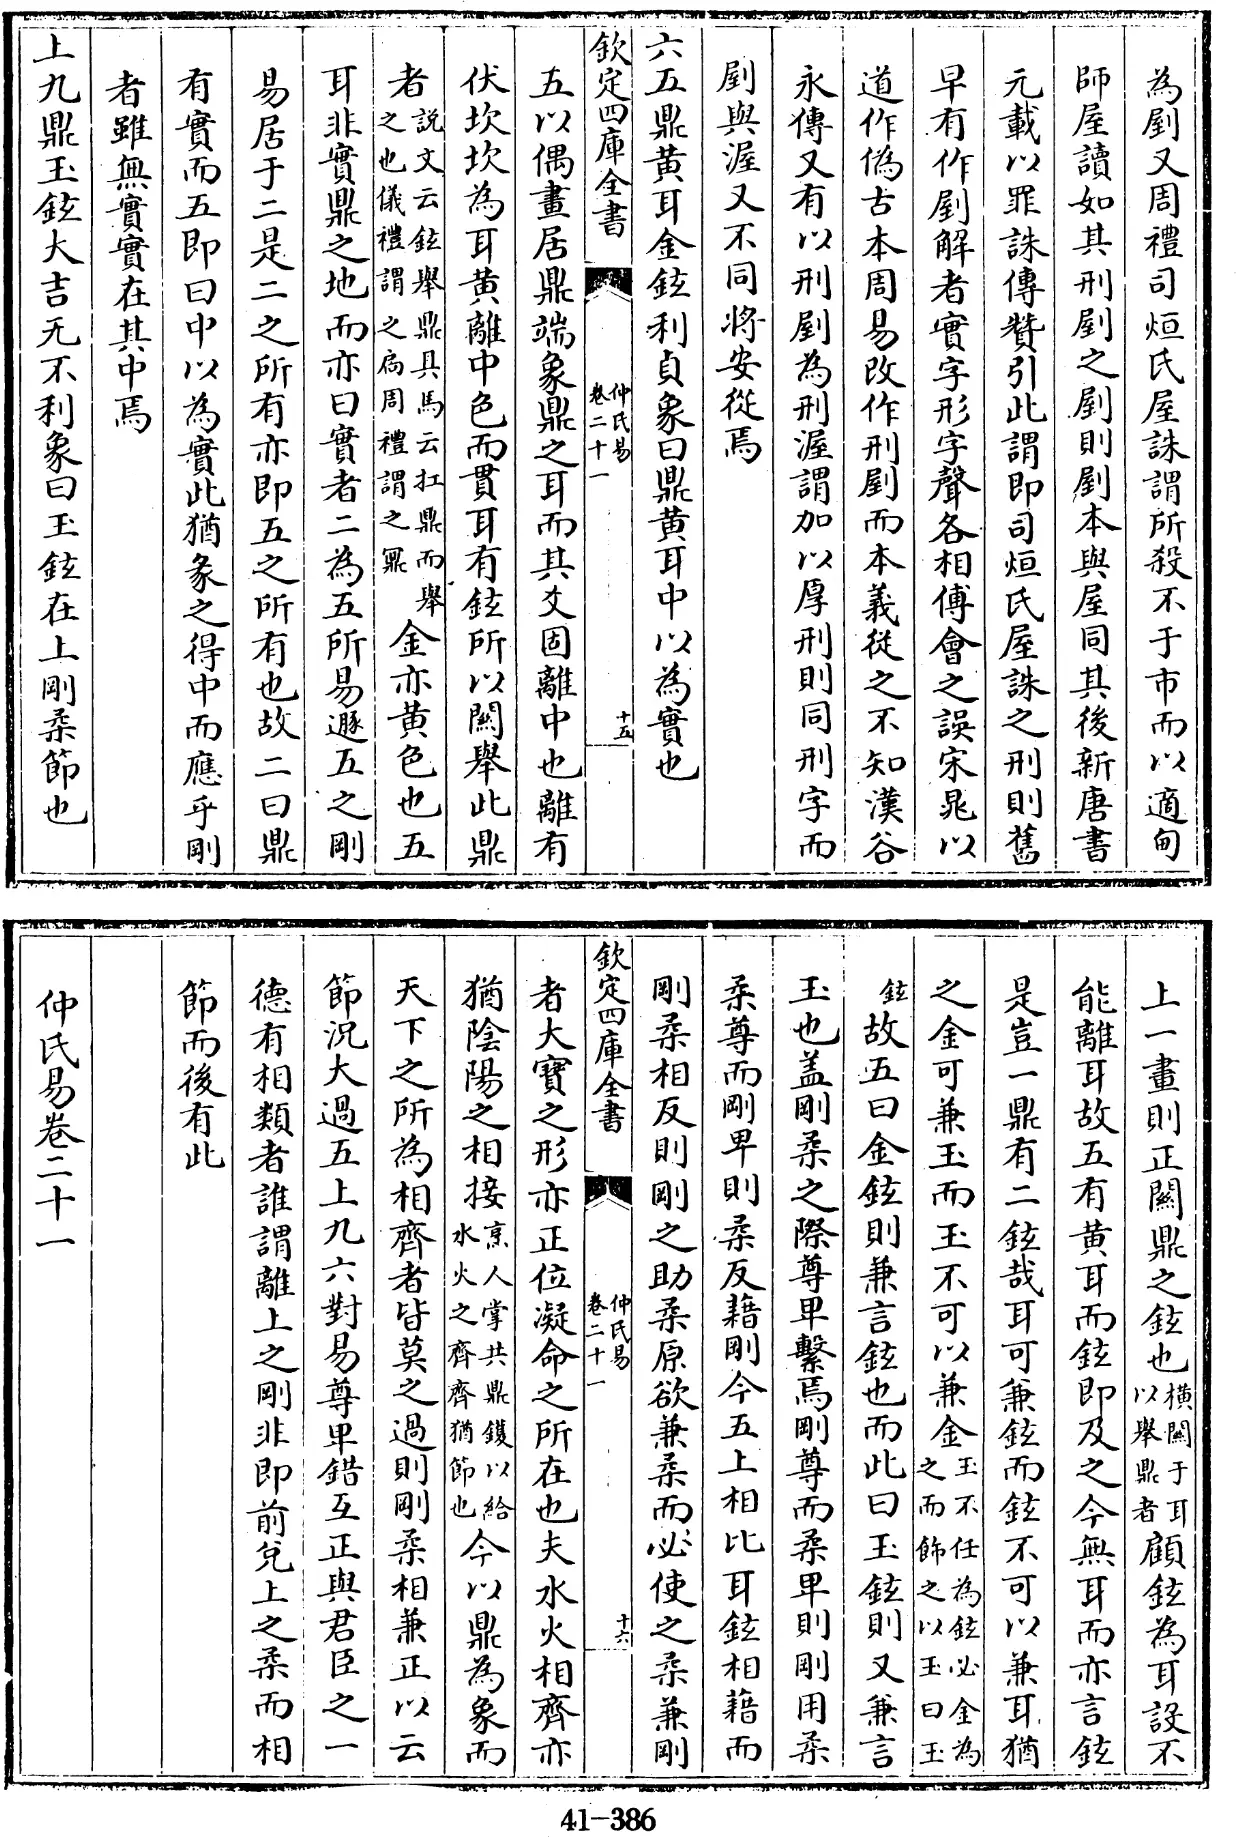 為㓻又周禮司烜氏屋誅謂所殺不于市而以適甸
師屋讀如其刑㓻之㓻則㓻本與屋同其後新唐書
元載以罪誅傳贊引此謂即司烜氏屋誅之刑則舊
早有作㓻解者實字形字聲各相傅會之誤宋晁以
道作偽古本周易改作刑㓻而本義從之不知漢谷
永傳又有以刑㓻為刑渥謂加以厚刑則同刑字而
㓻與渥又不同將安從焉
六五鼎黄耳金鉉利貞象曰鼎黄耳中以為實也
欽定四庫全書 仲氏易 卷二十一 十五
五以偶畫居鼎端象鼎之耳而其爻固離中也離有
伏坎坎為耳黄離中色而貫耳有鉉所以關舉此鼎
者說文云鉉舉鼎具馬云扛鼎而舉之也儀禮謂之扃周禮謂之鼏金亦黄色也五
耳非實鼎之地而亦曰實者二為五所易遯五之剛
易居于二是二之所有亦即五之所有也故二曰鼎
有實而五即曰中以為實此猶彖之得中而應乎剛
者雖無實實在其中焉
上九鼎玉鉉大吉无不利象曰玉鉉在上剛柔節也
上一畫則正關鼎之鉉也橫關于耳以舉鼎者顧鉉為耳設不
能離耳故五有黄耳而鉉即及之今無耳而亦言鉉
是豈一鼎有二鉉哉耳可兼鉉而鉉不可以兼耳猶
之金可兼玉而玉不可以兼金玉不任為鉉必金為之而飾之以玉曰玉
鉉故五曰金鉉則兼言鉉也而此曰玉鉉則又兼言
玉也盖剛柔之際尊卑繫焉剛尊而柔卑則剛用柔
柔尊而剛卑則柔反藉剛今五上相比耳鉉相藉而
剛柔相反則剛之助柔原欲兼柔而必使之柔兼剛
欽定四庫全書 仲氏易 卷二十一 十六
者大寶之形亦正位凝命之所在也夫水火相齊亦
猶陰陽之相接烹人掌共鼎鑊以給水火之齊齊猶節也今以鼎為象而
天下之所為相齊者皆莫之過則剛柔相兼正以云
節況大過五上九六對易尊卑錯互正與君臣之一
德有相類者誰謂離上之剛非即前兌上之柔而相
節而後有此
仲氏易卷二十一
41-386